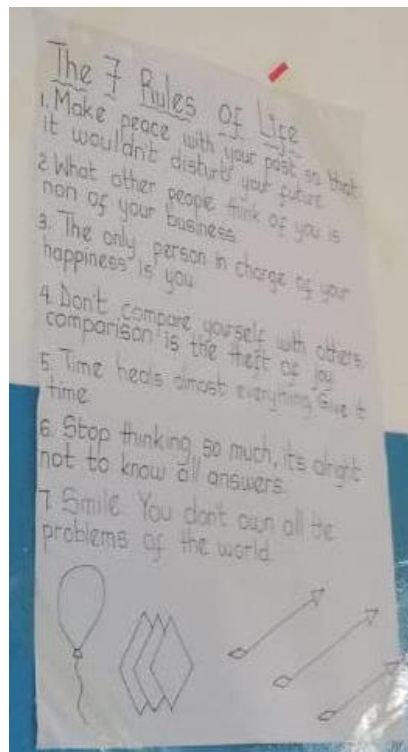 The 7 Rules Of Life
1. Make peace with your past so that
it wouldn't disturb your future
2. What other people think of you is
non of your business.
3. The only person in charge of your
happiness is you
4. Don't compare yourself with others,
comparison is the theft of joy
5. Time heals almost everything, Give it
time.
6. Stop thinking so much, it's alright
not to know all answers.
7. Smile. You don't own all the
problems of the world